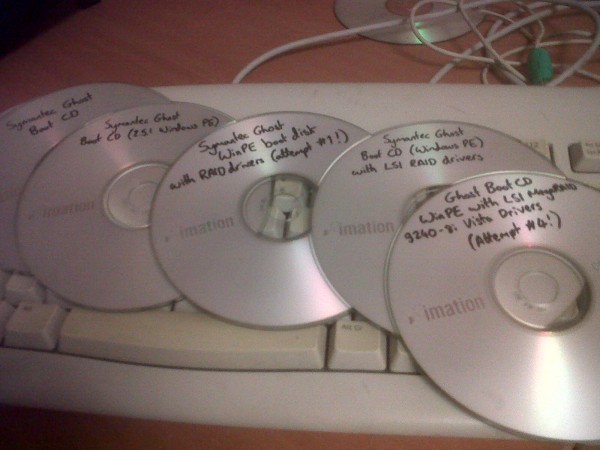 Symantec Ghost
Boot CD
Symantec Ghost
Boot CD (2.5: Windows PE)
imation
Symantec Ghost
WinPE boot disk
with RAID drivers (attempt #1!)
imation
Symantec Ghost
Boot CD (Windows PE)
with LSI RAID drivers
imation
Ghost Boot CD
WinPE with LSI MegaRAID
9240-8i Vista Drivers
(Attempt #4!)
imation
Alt Gr